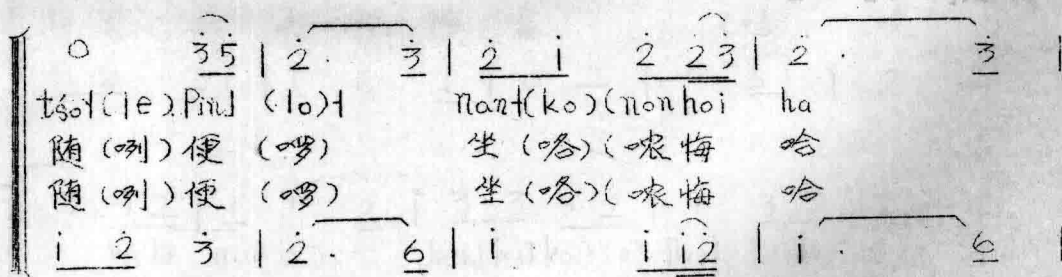 0 3̇5̇ | 2̇. 3̇ | 2̇ i̇ 2̇ 2̇3̇ | 2̇. 3̇ |
tṡo˧(le) Pin˩ (lo)˧ nan˧(ko)(non hoi ha
随（咧）便（啰） 坐（咯）（哝悔 哈
随（咧）便（啰） 坐（咯）（哝悔 哈
1̇ 2̇ 3̇ | 2̇. 6 | 1̇ 1̇ 1̇2̇ | 1̇. 6 |